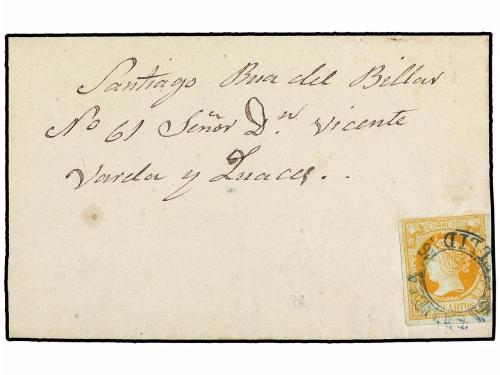 Santiago Rua del Billar
No 61 Señor Dn Vicente
Varela y Luaces..
CORREOS
CUARTOS